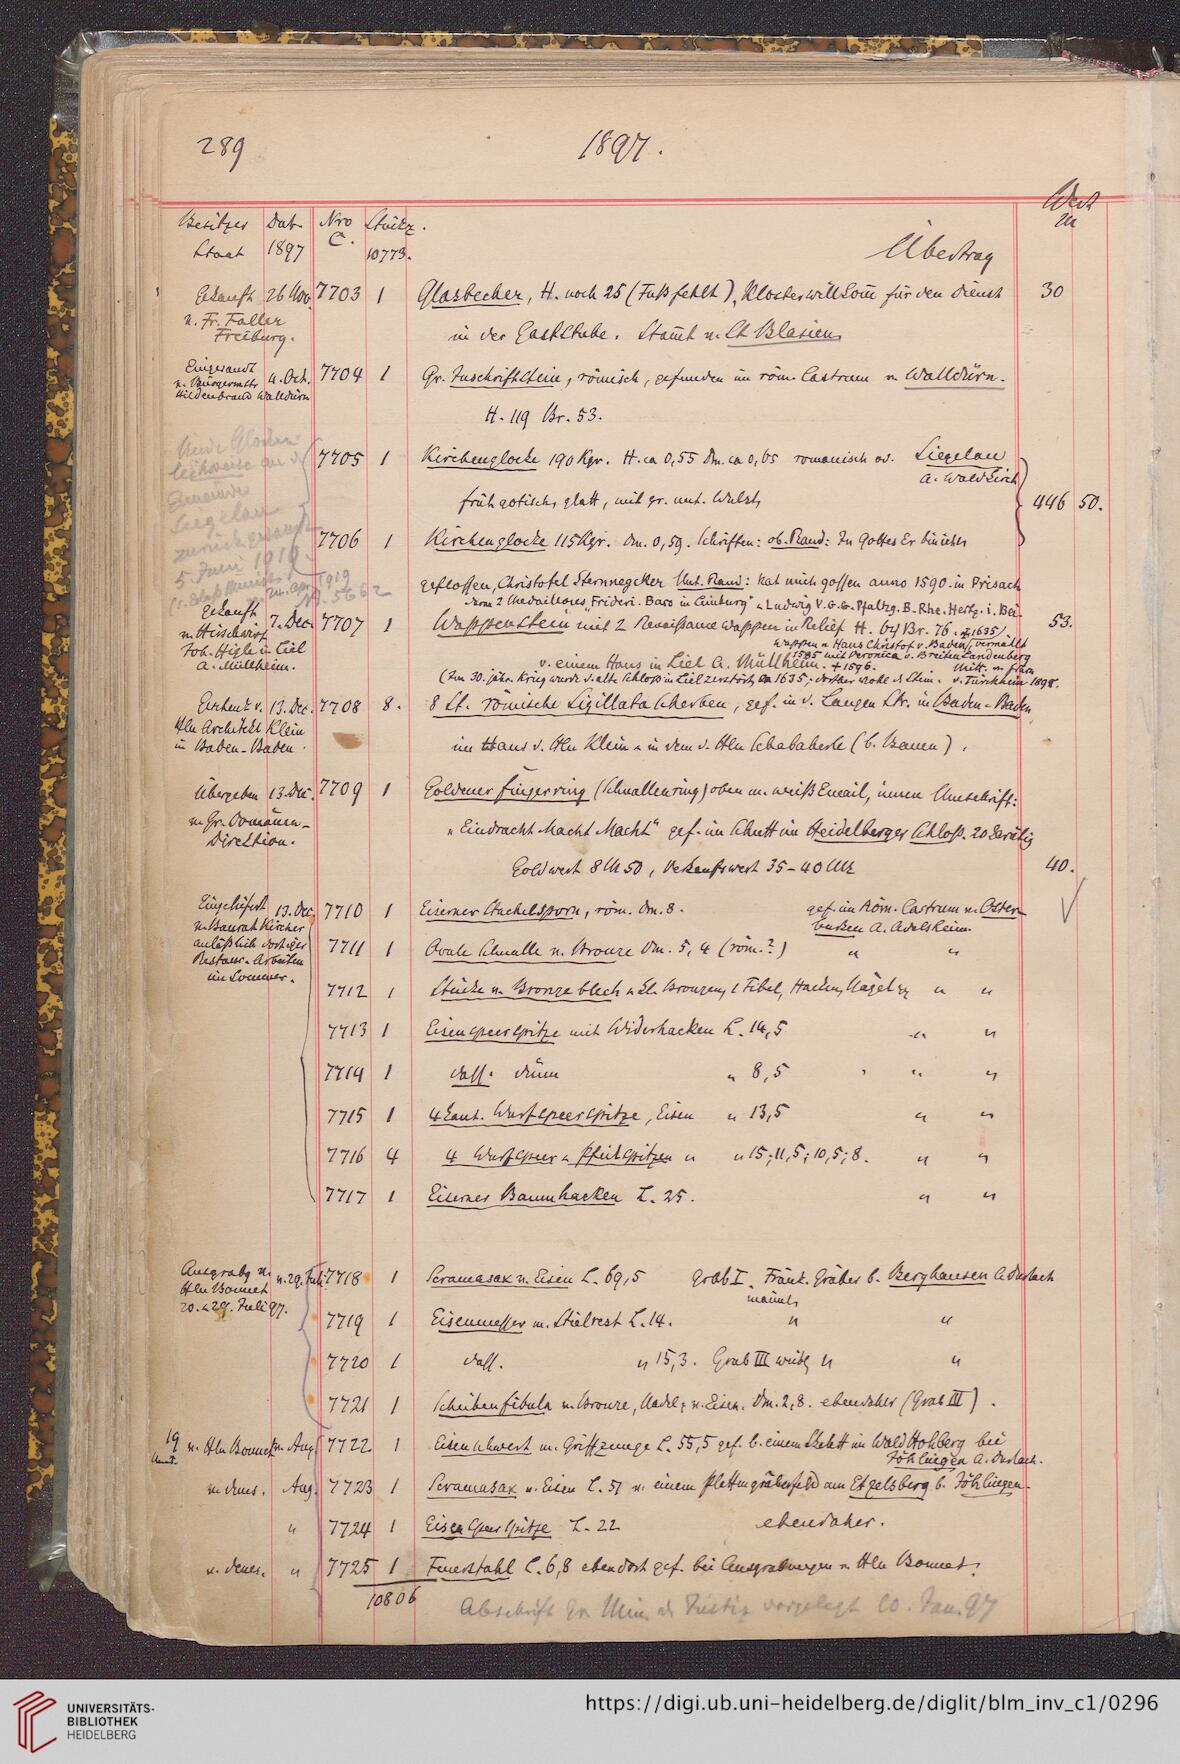 289
1897.
Besitzer Dat. Nro Stückz. Wert
Staat 1897 C. 10773. M
Übertrag
Gekauft 26 Nov. 7703 1 Glasbecher, H. noch 25 (Fuß fehlt), Klosterwillkom̄ für den Dienst 30
v. Fr. Faller in der Gaststube. Stam̄t v. St Blasien
Freiburg.
Eingesandt
v. Bürgermstr 4. Oct. 7704 1 Gr. Inschriftstein, römisch, gefunden im röm. Castrum v. Walldürn.
Hildenbrand Walldürn
H. 119 Br. 53.
Beide Glocken
leihweise an d.
Gemeinde
Siegelau
zurückgesandt
5. Juni 1919
7705 1 Kirchenglocke 190 Kgr. H. ca 0,55 Dm. ca 0,65 romanisch od. Siegelau
A. Waldkirch
frühgotisch, glatt, mit gr. unt. Wulst, 446 50.
7706 1 Kirchenglocke 115 Kgr. Dm. 0,59. Schriften: ob. Rand: In Gottes Er bin ichs
geflossen, Christofel Sternnegcker Unt. Rand: hat mich gossen anno 1590. in Prisach
Gekauft 7. Dez. 7707 1 Wappenstein mit 2 Renaissance wappen in Relief H. 67 Br. 76. 53.
v. Hirschwirt
Joh. Higle in Liel
A. Müllheim.
Wappen v. Hans Christof v. Baden, vermählt
1585 mit Veronica v. Breiten Landenberg
v. einem Haus in Liel A. Müllheim. † 1596. Mitt. v. Frhrn
(Im 30. jähr. Krieg wurde d. alte Schloß in Liel zerstört, ca 1635; dorther wohl d. Stein. v. Türckheim 1898.
Geschenk v. 13. Dec. 7708 8. 8 St. römische Sigillata Scherben, gef. in d. Langen Str. in Baden-Baden
Hln Architekt Klein
in Baden-Baden. im Haus d. Hln Klein u. in dem d. Hln Schababerle (b. Bauen).
Übergeben 13. Dec. 7709 1 Goldener Fingerring (Schnallenring) oben m. weiß Email, innen Umschrift:
v. Gr. Domänen-
Direktion. „Eindracht Macht Macht" gef. im Schutt im Heidelberger Schloß. 20 karätig
Goldwert 8 M 50, Verkaufswert 35-40 Mk 40.
Eingeliefert 13. Dec. 7710 1 Eiserner Stachelsporn, röm. Dm. 8. gef. im Röm. Castrum v. Oster-
v. Baurat Kircher burken A. Adelsheim.
anläßlich dortiger 7711 1 Ovale Schnalle v. Bronze Dm. 5,4 (röm.?) „ „
Restaur. Arbeiten
im Sommer.
7712 1 Stücke v. Bronzeblech u. kl. Bronzen, 1 Fibel, Hacken, Nägel &c „ „
7713 1 Eisenspeerspitze mit Widerhacken L. 14,5 „ „
7714 1 dass. dünn „ 8,5 „ „
7715 1 4 kant. Wurfspeerspitze, Eisen „ 13,5 „ „
7716 4 4 Wurfspeer u. Pfeilspitzen „ „ 15; 11,5; 10,5; 8. „ „
7717 1 Eiserner Baumhacken L. 25. „ „
Ausgrabg v. u. 29. Juli 7718 1 Scramasax v. Eisen L. 69,5 Grab I. Fränk. Gräber b. Berghausen A. Durlach
Hln Bonnet männl.
20. u. 29. Juli 97. 7719 1 Eisenmesser m. Stielrest L. 14. „ „
7720 1 dass. „ 15,3. Grab III weibl. „ „
7721 1 Scheibenfibula v. Bronze, Nadel v. Eisen. Dm. 2,8. ebendaher (Grab III).
v. Hln Bonnet Aug. 7722 1 Eisenschwert m. Griffzunge L. 55,5 gef. b. einem Skelett im Wald Hohberg bei
Jöhlingen A. Durlach.
v. dems. Aug. 7723 1 Scramasax v. Eisen L. 51 v. einem Plattengräberfeld am Etzelsberg b. Jöhlingen.
„ 7724 1 Eisenspeerspitze L. 22 ebendaher.
v. dems. „ 7725 1 Feuerstahl L. 6,8 ebendort gef. bei Ausgrabungen v. Hln Bonnet.
10806
Abschrift Gr. Min. d. Justiz vorgelegt 10. Jan. 97
UNIVERSITÄTS-
BIBLIOTHEK
HEIDELBERG
https://digi.ub.uni-heidelberg.de/diglit/blm_inv_c1/0296